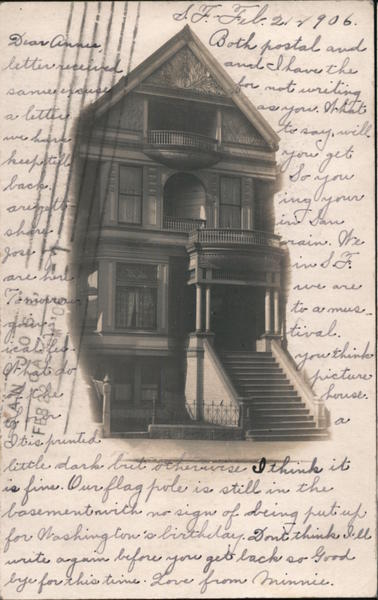 S.F. Feb. 21 1906.
Dear Annie, Both postal and
letter received and I have the
same excuse for not writing
a letter as you. What
we have to say, will
keep till you get
back. So you
are getting your
share in San
Jose rain. We
are here in S.F.
Tomorrow we are
going to a mus-
ical festival.
What do you think
of the picture
of our house.
It is printed a
little dark but otherwise I think it
is fine. Our flag pole is still in the
basement with no sign of being put up
for Washington's birthday. Dont think I'll
write again before you get back so Good
bye for this time. Love from Minnie.
SAN
FEB